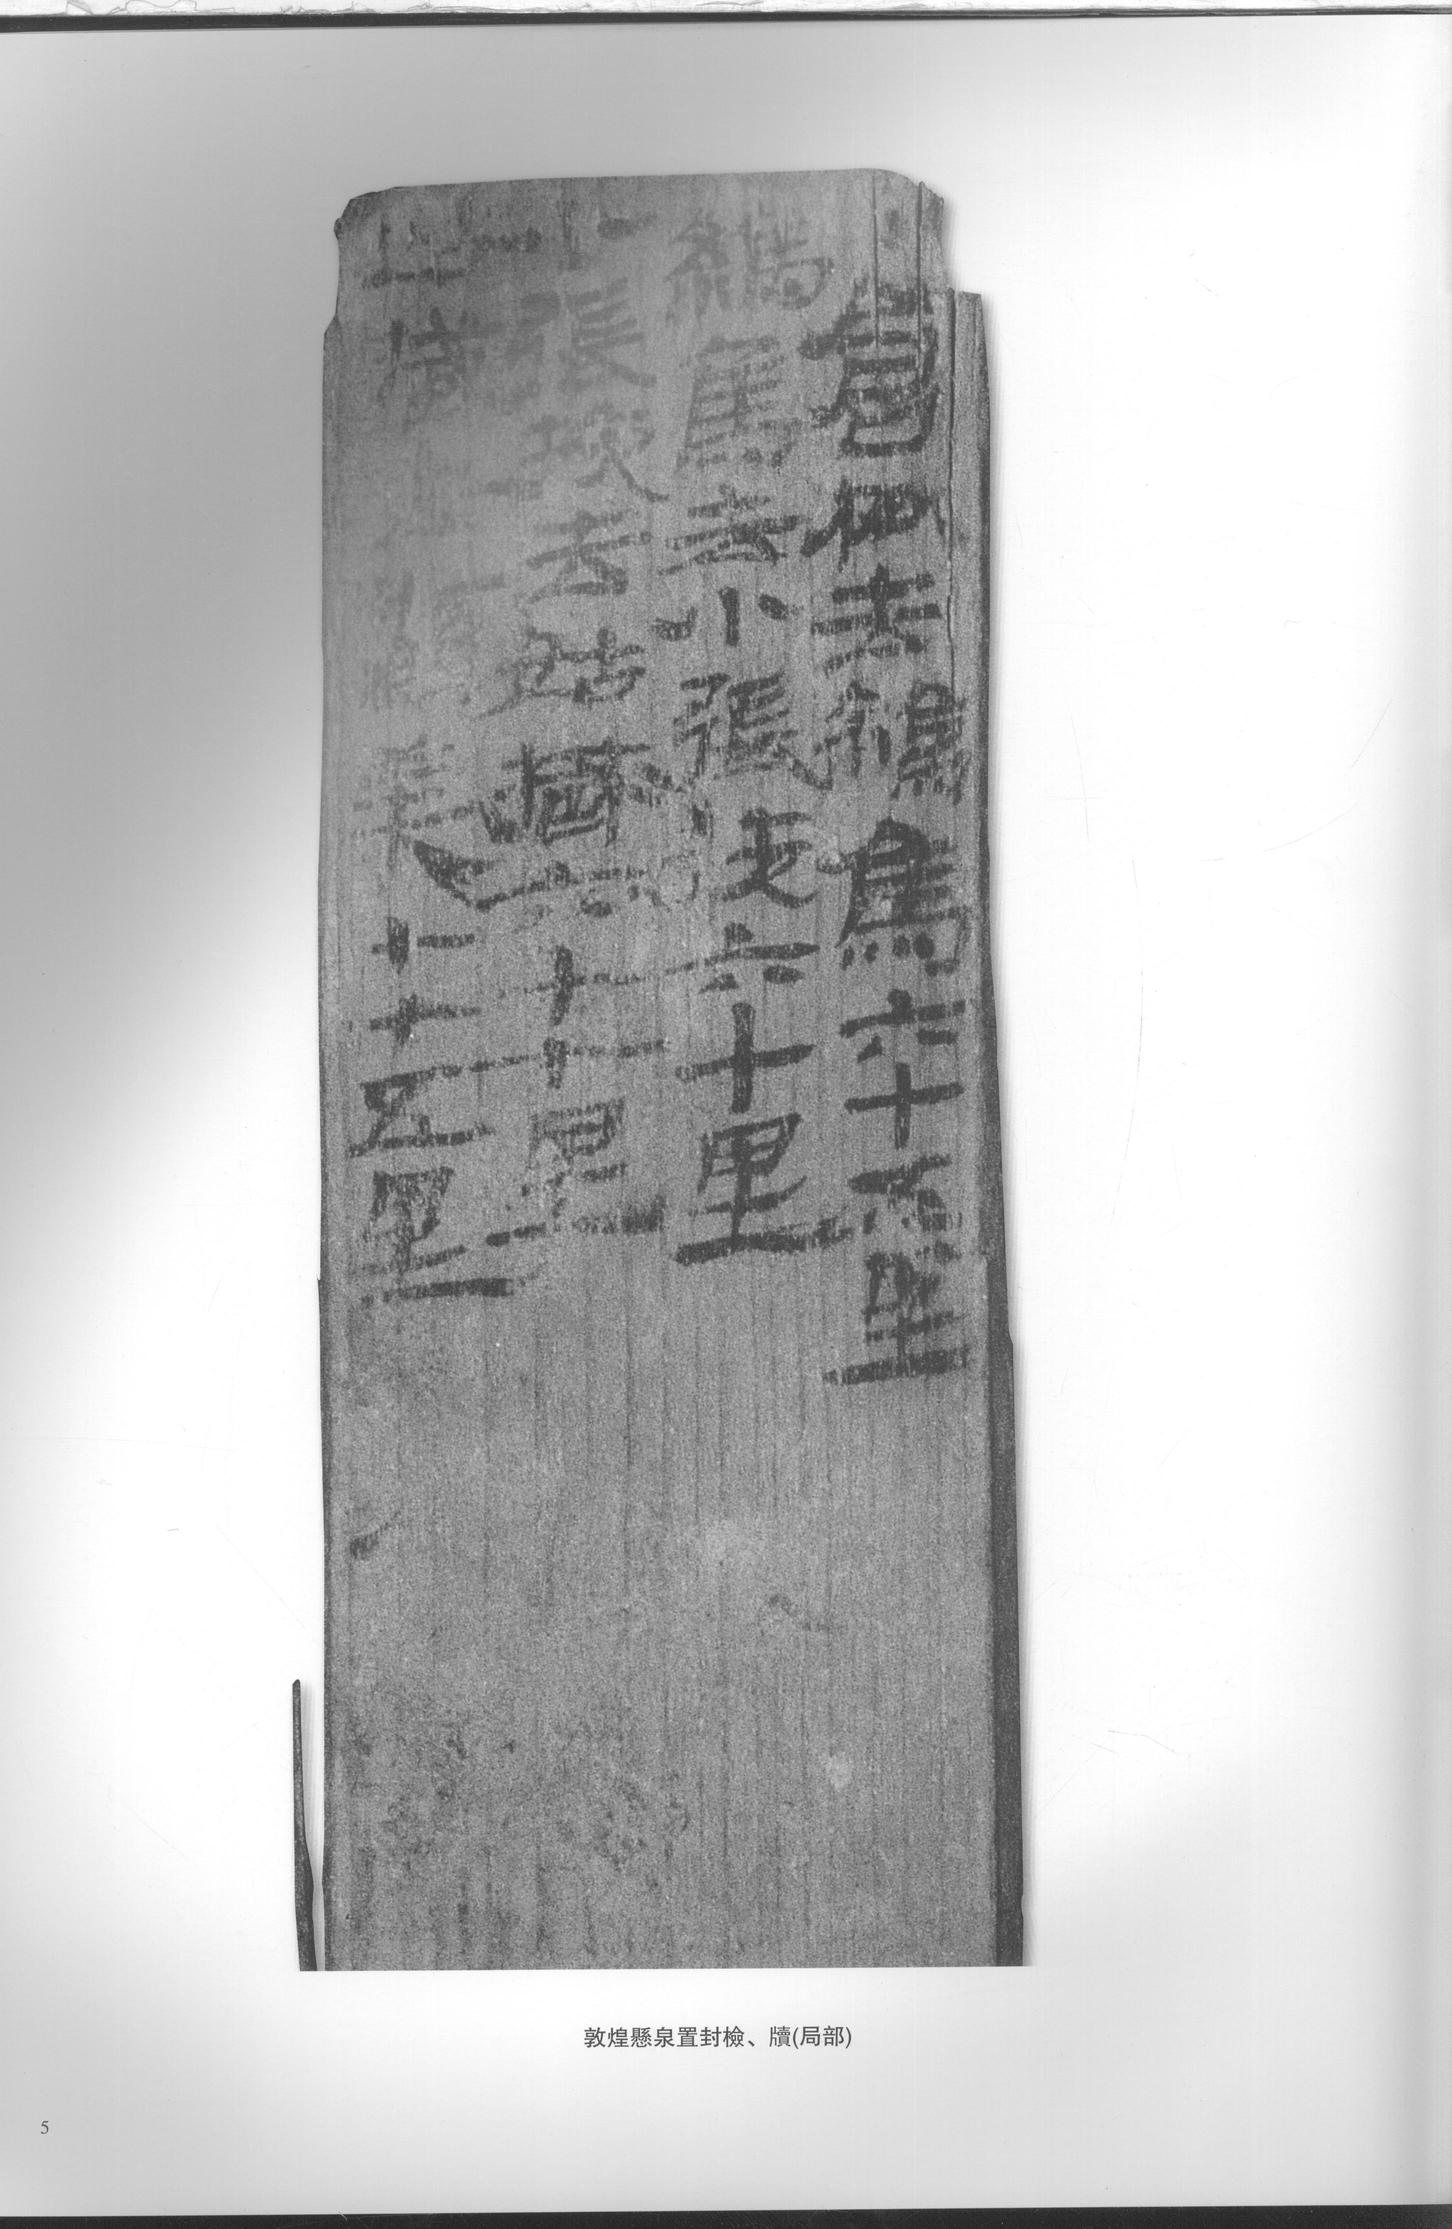 倉松去鸞鳥六十五里
鸞鳥去小張掖六十里
張掖去姑臧六十七里
去顯美七十五里
敦煌懸泉置封檢、牘(局部)
5